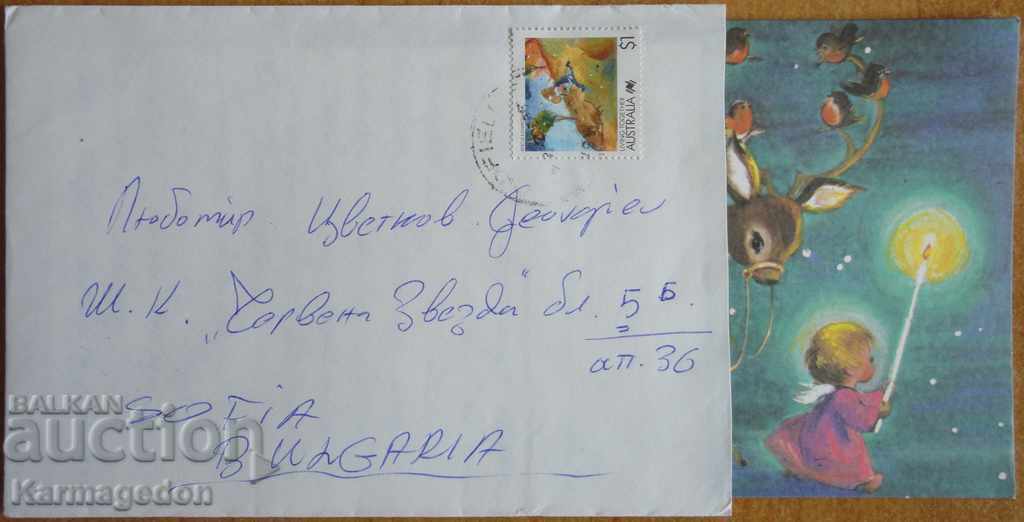 $1
LIVING TOGETHER
AUSTRALIA
FIEL
Любомир Цветков
Ж.К. "Червена Звезда" бл. 5 Б.
ап. 36
SOFIA
BULGARIA
BALKAN
auction
Karmagedon